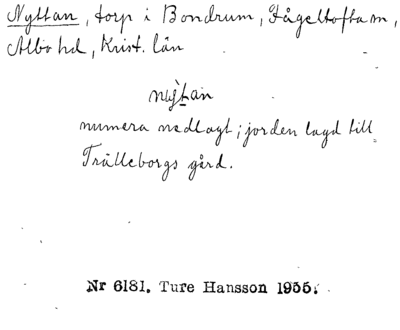 Nyttan, torp i Bondrum, Fågeltofta sn,
Albo hd, Krist. län
nyt̀an
numera nedlagt; jorden lagd till
Trälleborgs gård.
Nr 6181. Ture Hansson 1955.